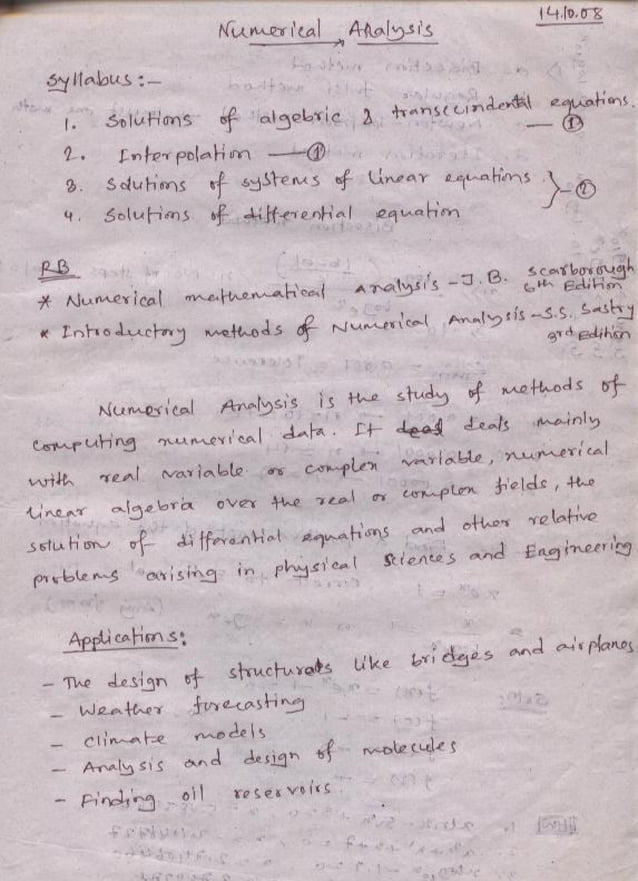 14.10.08
Numerical Analysis
Syllabus :-
1. Solutions of algebric & transccindental equations.
— ①
2. Interpolation — ①
3. Solutions of systems of linear equations
} - ②
4. Solutions of differential equation
RB
* Numerical mathematical analysis - J.B. Scarborough
6th Edition
* Introductory methods of Numerical Analysis - S.S. Sastry
3rd Edition
Numerical Analysis is the study of methods of
computing numerical data. It deals mainly
with real variable or complex variable, numerical
linear algebra over the real or complex fields, the
solution of differential equations and other relative
problems arising in physical sciences and Engineering
Applications:
- The design of structurals like bridges and airplanes
- Weather forecasting
- climate models
- Analysis and design of molecules
- Finding oil reservoirs